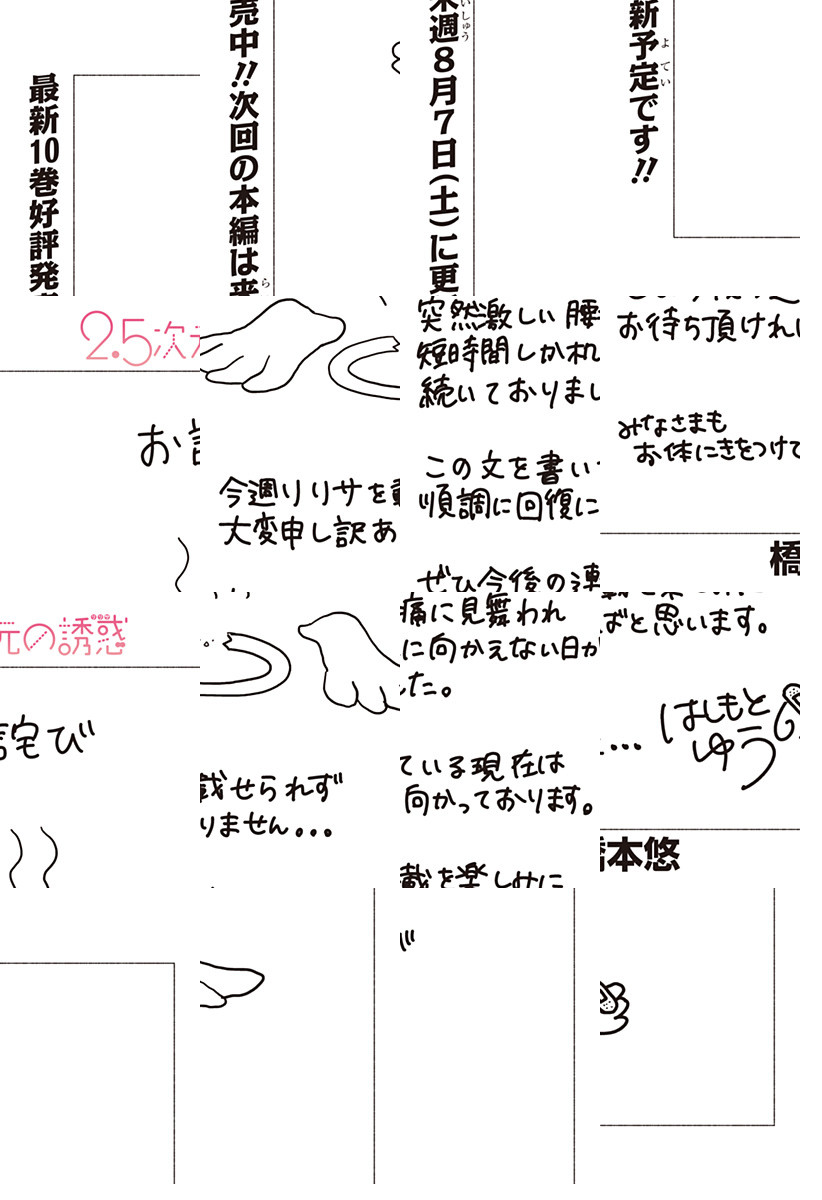 最新10巻好評発売中!!次回の本編は来週8月7日(土)に更新予定です!!
2.5次元の誘惑
お詫び
今週リリサを載せられず
大変申し訳ありません...
突然激しい腰痛に見舞われ
短時間しか机に向かえない日が
続いておりました。
この文を書いている現在は
順調に回復に向かっております。
ぜひ今後の連載を楽しみに
お待ち頂ければと思います。
みなさまも
お体にきをつけて...
はしもと
ゆう
橋本悠